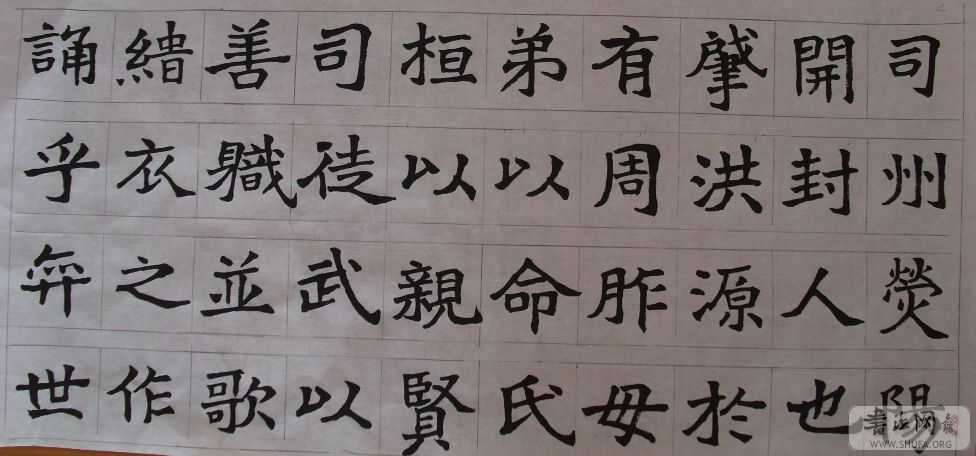 司州熒陽
開封人也
肇洪源於
有周胙母
弟以命氏
桓以親賢
司徒武以
善軄並歌
緇衣之作
誦乎弈世
書法网
WWW.SHUFA.ORG